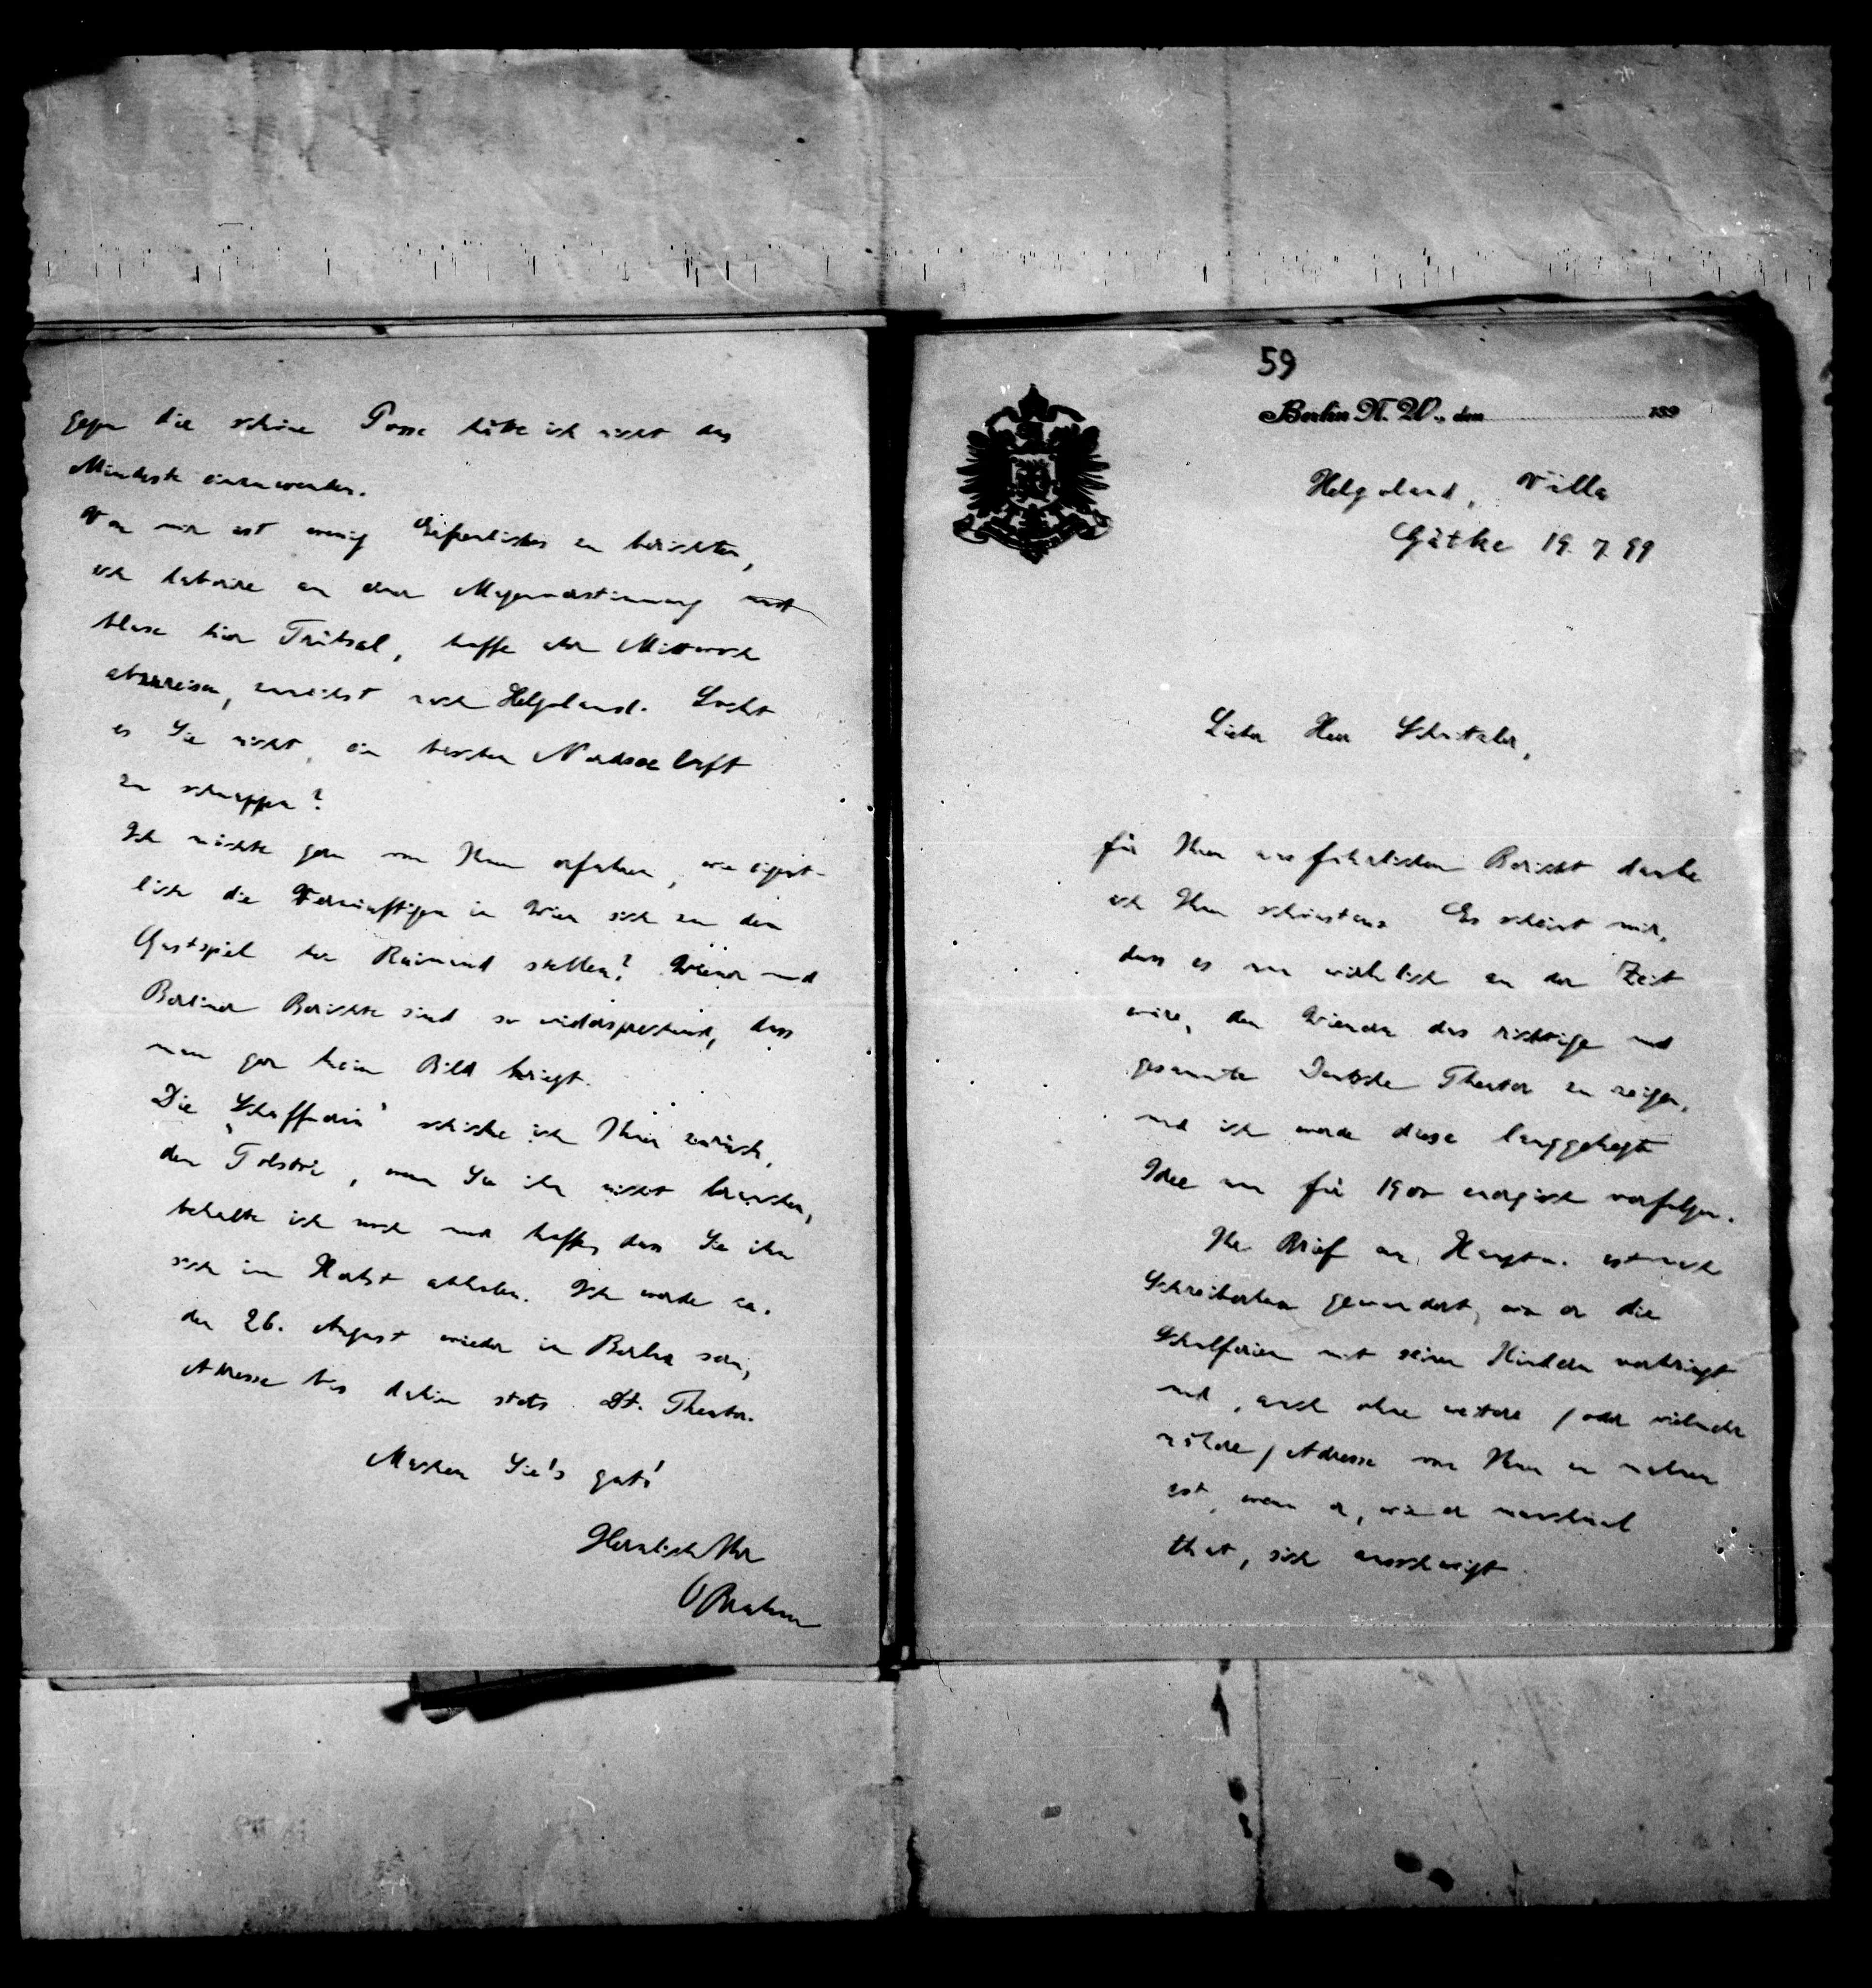 gegen die schöne Posse hätte ich nicht das
Mindeste einzuwenden.
Von mir ist wenig Erfreuliches zu berichten,
ich laborire an einer Magenverstimmung und
blase hier Trübsal, hoffe aber Mittwoch
abzureisen, zunächst nach Helgoland. Lockt
es Sie nicht, ein bisschen Nordseeluft
zu schnappen?
Ich möchte gern von Ihnen erfahren, wie eigent-
lich die Vernünftigen in Wien sich zu dem
Gastspiel bei Raimund stellen? Wiener und
Berliner Berichte sind so widersprechend, dass
man gar kein Bild kriegt.
Die "Schaffnerin" schicke ich Ihnen zurück,
den Tolstoi, wenn Sie ihn nicht brauchen,
behalte ich noch und hoffe, dass Sie ihn
sich im Herbst abholen. Ich werde ca.
den 26. August wieder in Berlin sein,
Adresse bis dahin stets Dt. Theater.
Machen Sie's gut!
Herzlich Ihr
OBrahm
59
Berlin N. W., den 189
Helgoland, Villa
Gätke 19. 7. 99
Lieber Herr Schnitzler,
für Ihren ausführlichen Bericht danke
ich Ihnen schönstens. Es scheint mir,
dass es nun wirklich an der Zeit
wäre, den Wienern das richtige und
gesammte Deutsche Theater zu zeigen,
und ich werde diese langgehegte
Idee nun für 1900 energisch verfolgen.
Ihr Brief an Hauptm. ist nach
Schreiberhau gewandert, wo er die
Schulferien mit seinen Kindern verbringt
und, auch ohne weitere (oder vielmehr
nähere) Adresse von Ihnen zu nehmen
ist, wenn er, wie er manchmal
that, sich ausschweigt